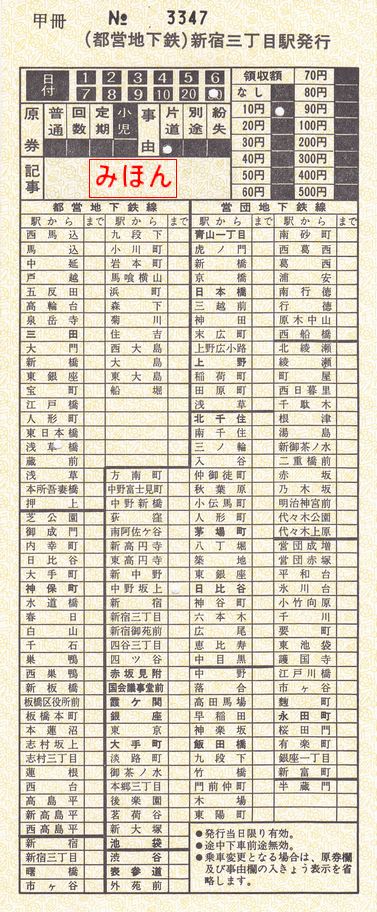 甲冊 № 3347
(都営地下鉄)新宿三丁目駅発行
日付
1 2 3 4 5 6
7 8 9 10 20 30
原券
普通
回数
定期
小児
事由
片道
別途
紛失
記事
みほん
領収額
なし
10円
20円
30円
40円
50円
60円
70円
80円
90円
100円
200円
300円
400円
500円
都営地下鉄線
駅から まで 駅から まで
西馬込
馬込
中延
戸越
五反田
高輪台
泉岳寺
三田
大門
新橋
東銀座
宝町
江戸橋
人形町
東日本橋
浅草橋
蔵前
浅草
本所吾妻橋
押上
芝公園
御成門
内幸町
日比谷
大手町
神保町
水道橋
春日
白山
千石
巣鴨
西巣鴨
新板橋
板橋区役所前
板橋本町
本蓮沼
志村坂上
志村三丁目
蓮根
西台
高島平
新高島平
西高島平
新宿
新宿三丁目
曙橋
市ヶ谷
九段下
小川町
岩本町
馬喰横山
浜町
森下
菊川
住吉
西大島
大島
東大島
船堀
方南町
中野富士見町
中野新橋
荻窪
南阿佐ヶ谷
新高円寺
東高円寺
新中野
中野坂上
新宿
新宿三丁目
新宿御苑前
四谷三丁目
四ツ谷
赤坂見附
国会議事堂前
霞ケ関
銀座
東京
大手町
淡路町
御茶ノ水
本郷三丁目
後楽園
茗荷谷
新大塚
池袋
渋谷
表参道
外苑前
営団地下鉄線
駅から まで 駅から まで
青山一丁目
虎ノ門
新橋
京橋
日本橋
三越前
神田
末広町
上野広小路
上野
稲荷町
田原町
浅草
北千住
南千住
三ノ輪
入谷
仲御徒町
秋葉原
小伝馬町
人形町
茅場町
八丁堀
築地
東銀座
日比谷
神谷町
六本木
広尾
恵比寿
中目黒
中野
落合
高田馬場
早稲田
神楽坂
飯田橋
九段下
竹橋
門前仲町
木場
東陽町
南砂町
西葛西
葛西
浦安
南行徳
行徳
原木中山
西船橋
北綾瀬
綾瀬
町屋
西日暮里
千駄木
根津
湯島
新御茶ノ水
二重橋前
赤坂
乃木坂
明治神宮前
代々木公園
代々木上原
営団成増
営団赤塚
平和台
氷川台
小竹向原
千川
要町
東池袋
護国寺
江戸川橋
市ヶ谷
麹町
永田町
桜田門
有楽町
銀座一丁目
新富町
半蔵門
●発行当日限り有効。
●途中下車前途無効。
●乗車変更となる場合は、原券欄
及び事由欄の入きょう表示を省
略します。